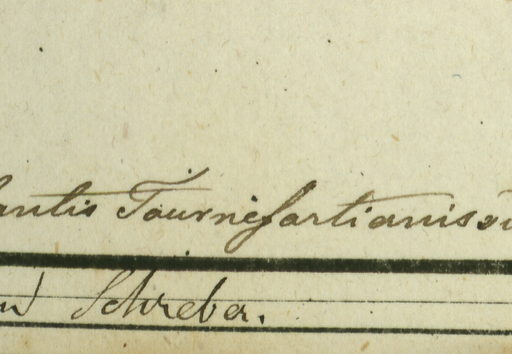 lantis Tournefortianis
Schreber.